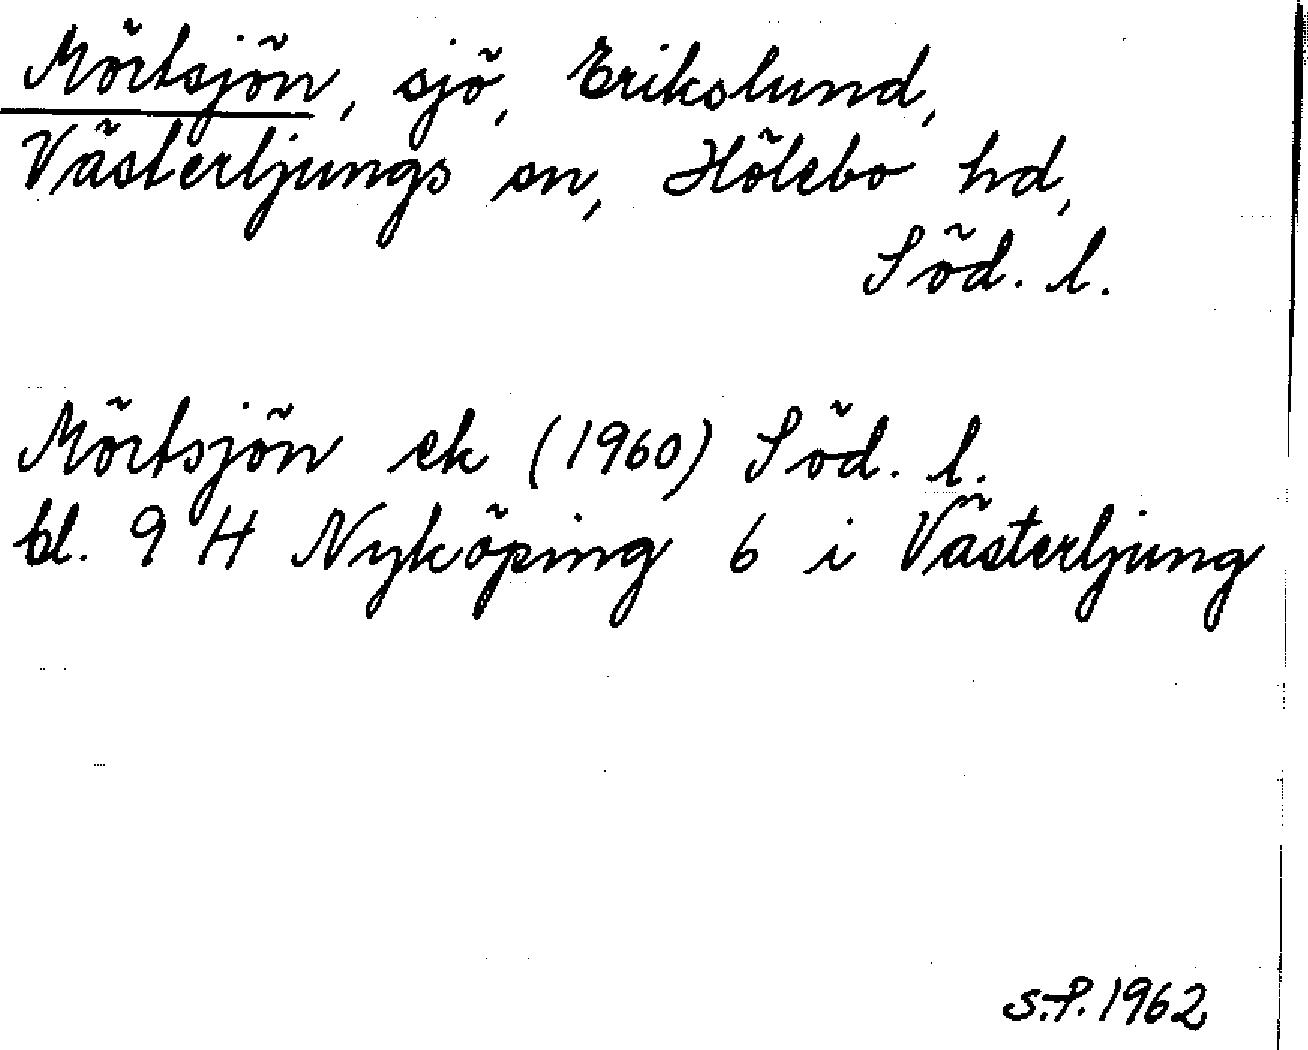 Mörtsjön, sjö, Erikslund,
Västerljungs sn, Hölebo hd,
Söd. l.
Mörtsjön ek (1960) Söd. l.
bl. 9 H Nyköping 6 i Västerljung
S.P. 1962